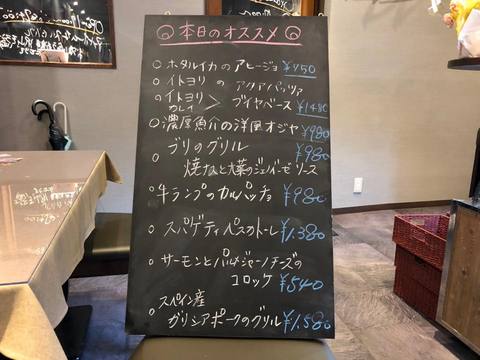 本日のオススメ
○ホタルイカのアヒージョ ¥750
○イトヨリ の アクアパッツァ
○イトヨリ
カレイ > ブイヤベース ¥1480
○濃厚魚介の洋風オジヤ ¥980
○ブリのグリル ¥980
焼なすと大葉のジェノベーゼソース
○牛ランプのカルパッチョ ¥980
○スパゲティペスカトーレ ¥1.380
○サーモンとパルメジャーノチーズの
コロッケ ¥540
○スペイン産
ガリシアポークのグリル ¥1.580